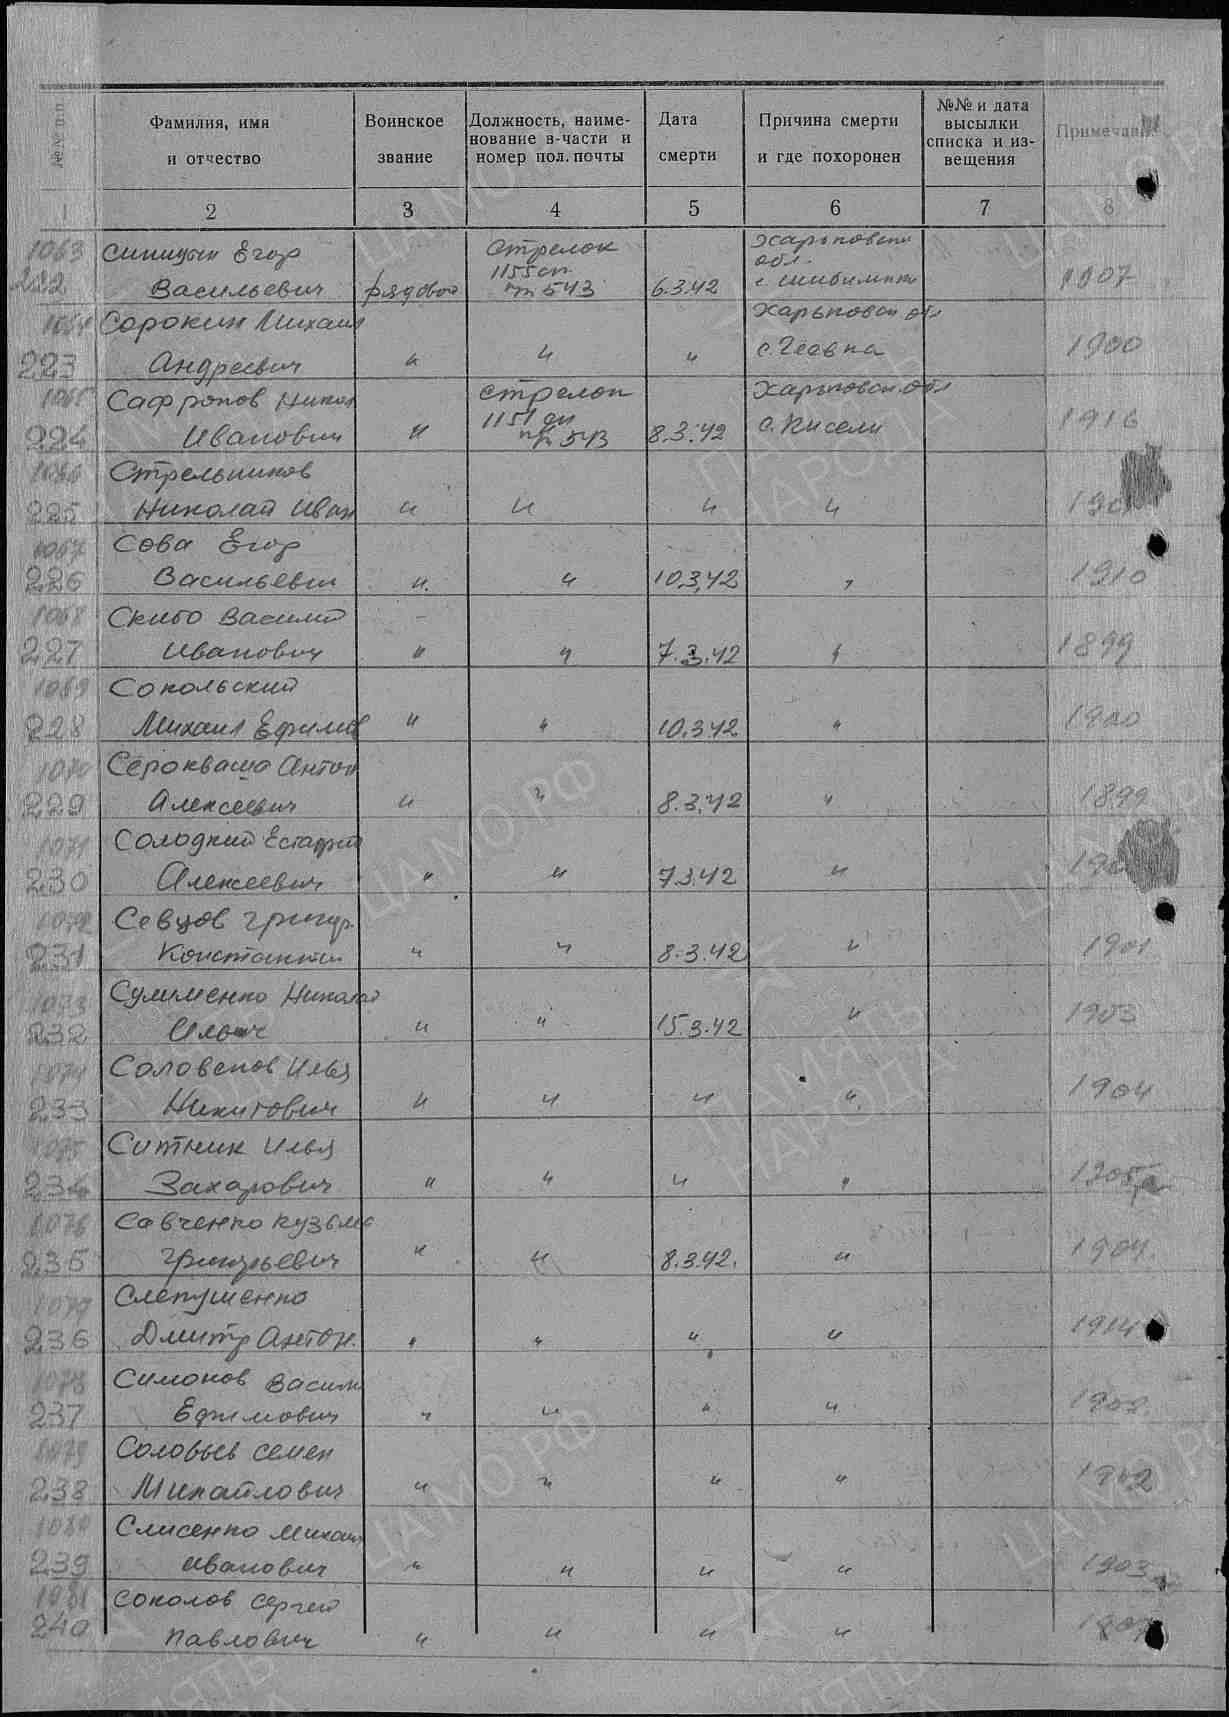 №№ п.п
Фамилия, имя
и отчество
Воинское
звание
Должность, наиме-
нование в-части и
номер пол. почты
Дата
смерти
Причина смерти
и где похоронен
№№ и дата
высылки
списка и из-
вещения
Примечание
1 2 3 4 5 6 7 8
1063 Синицын Егор стрелок Харьковски
обл.
222 Васильевич рядовой 1155 сп 6.3.42 с. 1907
пп 543
1064 Сорокин Михаил Харьковск обл
223 Андреевич " " " с. 1900
1065 Сафронов Никол стрелок Харьковск. обл
224 Иванович " 1151 сп 8.3.42 с. Кисели 1916
пп 543
1066 Стрельников
225 Николай Иван " " " "
1067 Сова Егор
226 Васильевич " " 10.3.42 " 1910
1068 Скибо Василий
227 Иванович " " 7.3.42 " 1899
1069 Сокольский
228 Михаил Ефимов " " 10.3.42 " 1900
1070 Серокваша Антон
229 Алексеевич " " 8.3.42 " 1899
1071 Солодкий
230 Алексеевич " " 7.3.42 "
1072 Севцов Григор.
231 Константин " " 8.3.42 " 1901
1073 Сулименко Николай
232 Ильич " " 15.3.42 " 1903
1074 Соловенов Илья
233 Никитович " " " " 1904
1075 Ситник Илья
234 Захарович " " " " 1905
1076 Савченко Кузьма
235 Григорьевич " " 8.3.42. " 1904
1077 Слепушенко
236 Дмитр Антон. " " " " 1914
1078 Симонов Васили
237 Ефимович " " " "
1079 Соловьев Семен
238 Михайлович " " " " 1902
1080 Слисенко Михаил
239 Иванович " " " " 1903
1081 Соколов Сергей
240 Павлович " " " "
ЦАМО.РФ
ПАМЯТЬ
НАРОДА